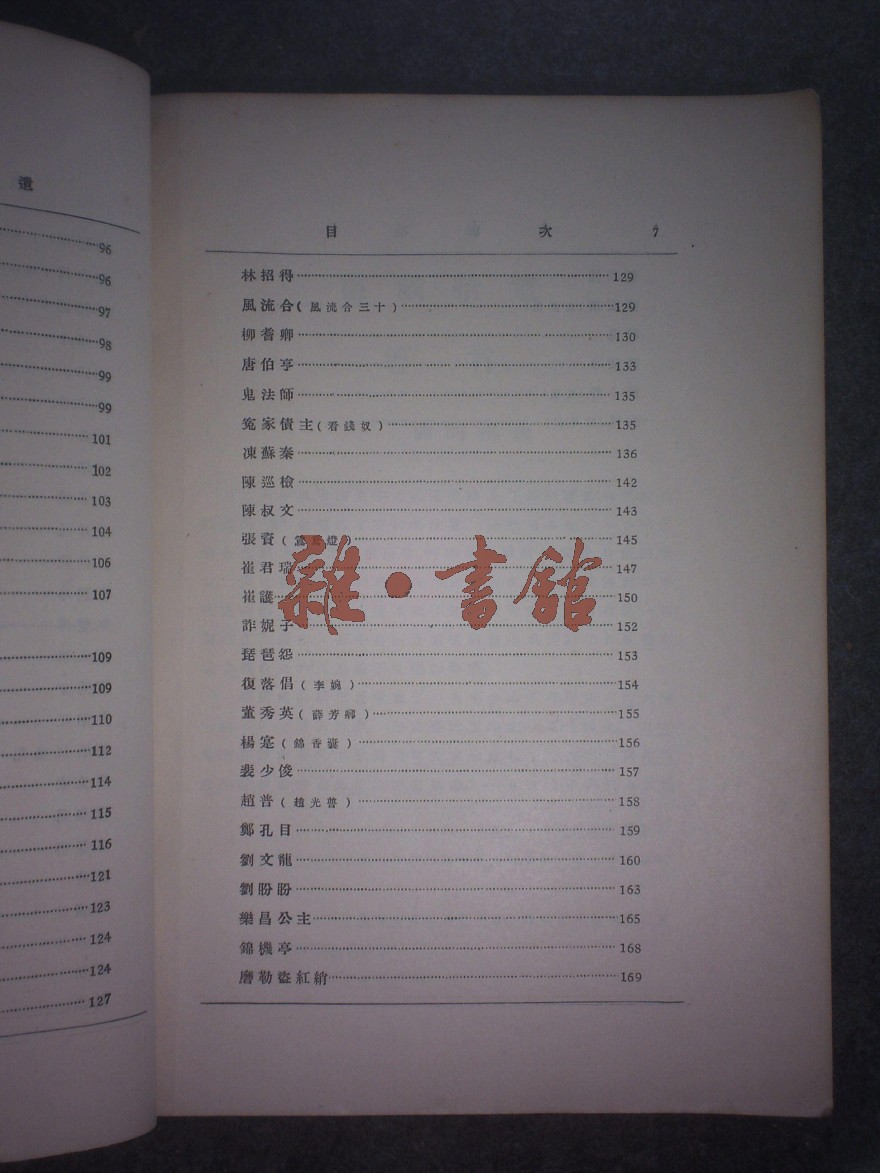 遺
96
96
97
98
99
99
101
102
103
104
106
107
109
109
110
112
114
115
116
121
123
124
124
127
目 次 7
林招得 129
風流合(風流合三十) 129
柳耆卿 130
唐伯亨 133
鬼法師 135
寃家債主(看錢奴) 135
凍蘇秦 136
陳巡檢 142
陳叔文 143
張資( 燈) 145
崔君瑞 147
崔護 150
詐妮子 152
琵琶怨 153
復落倡(李婉) 154
董秀英 155
楊寔(錦香囊) 156
裴少俊 157
趙普(趙光普) 158
鄭孔目 159
劉文龍 160
劉盼盼 163
樂昌公主 165
錦機亭 168
磨勒盜紅綃 169
雜·書館